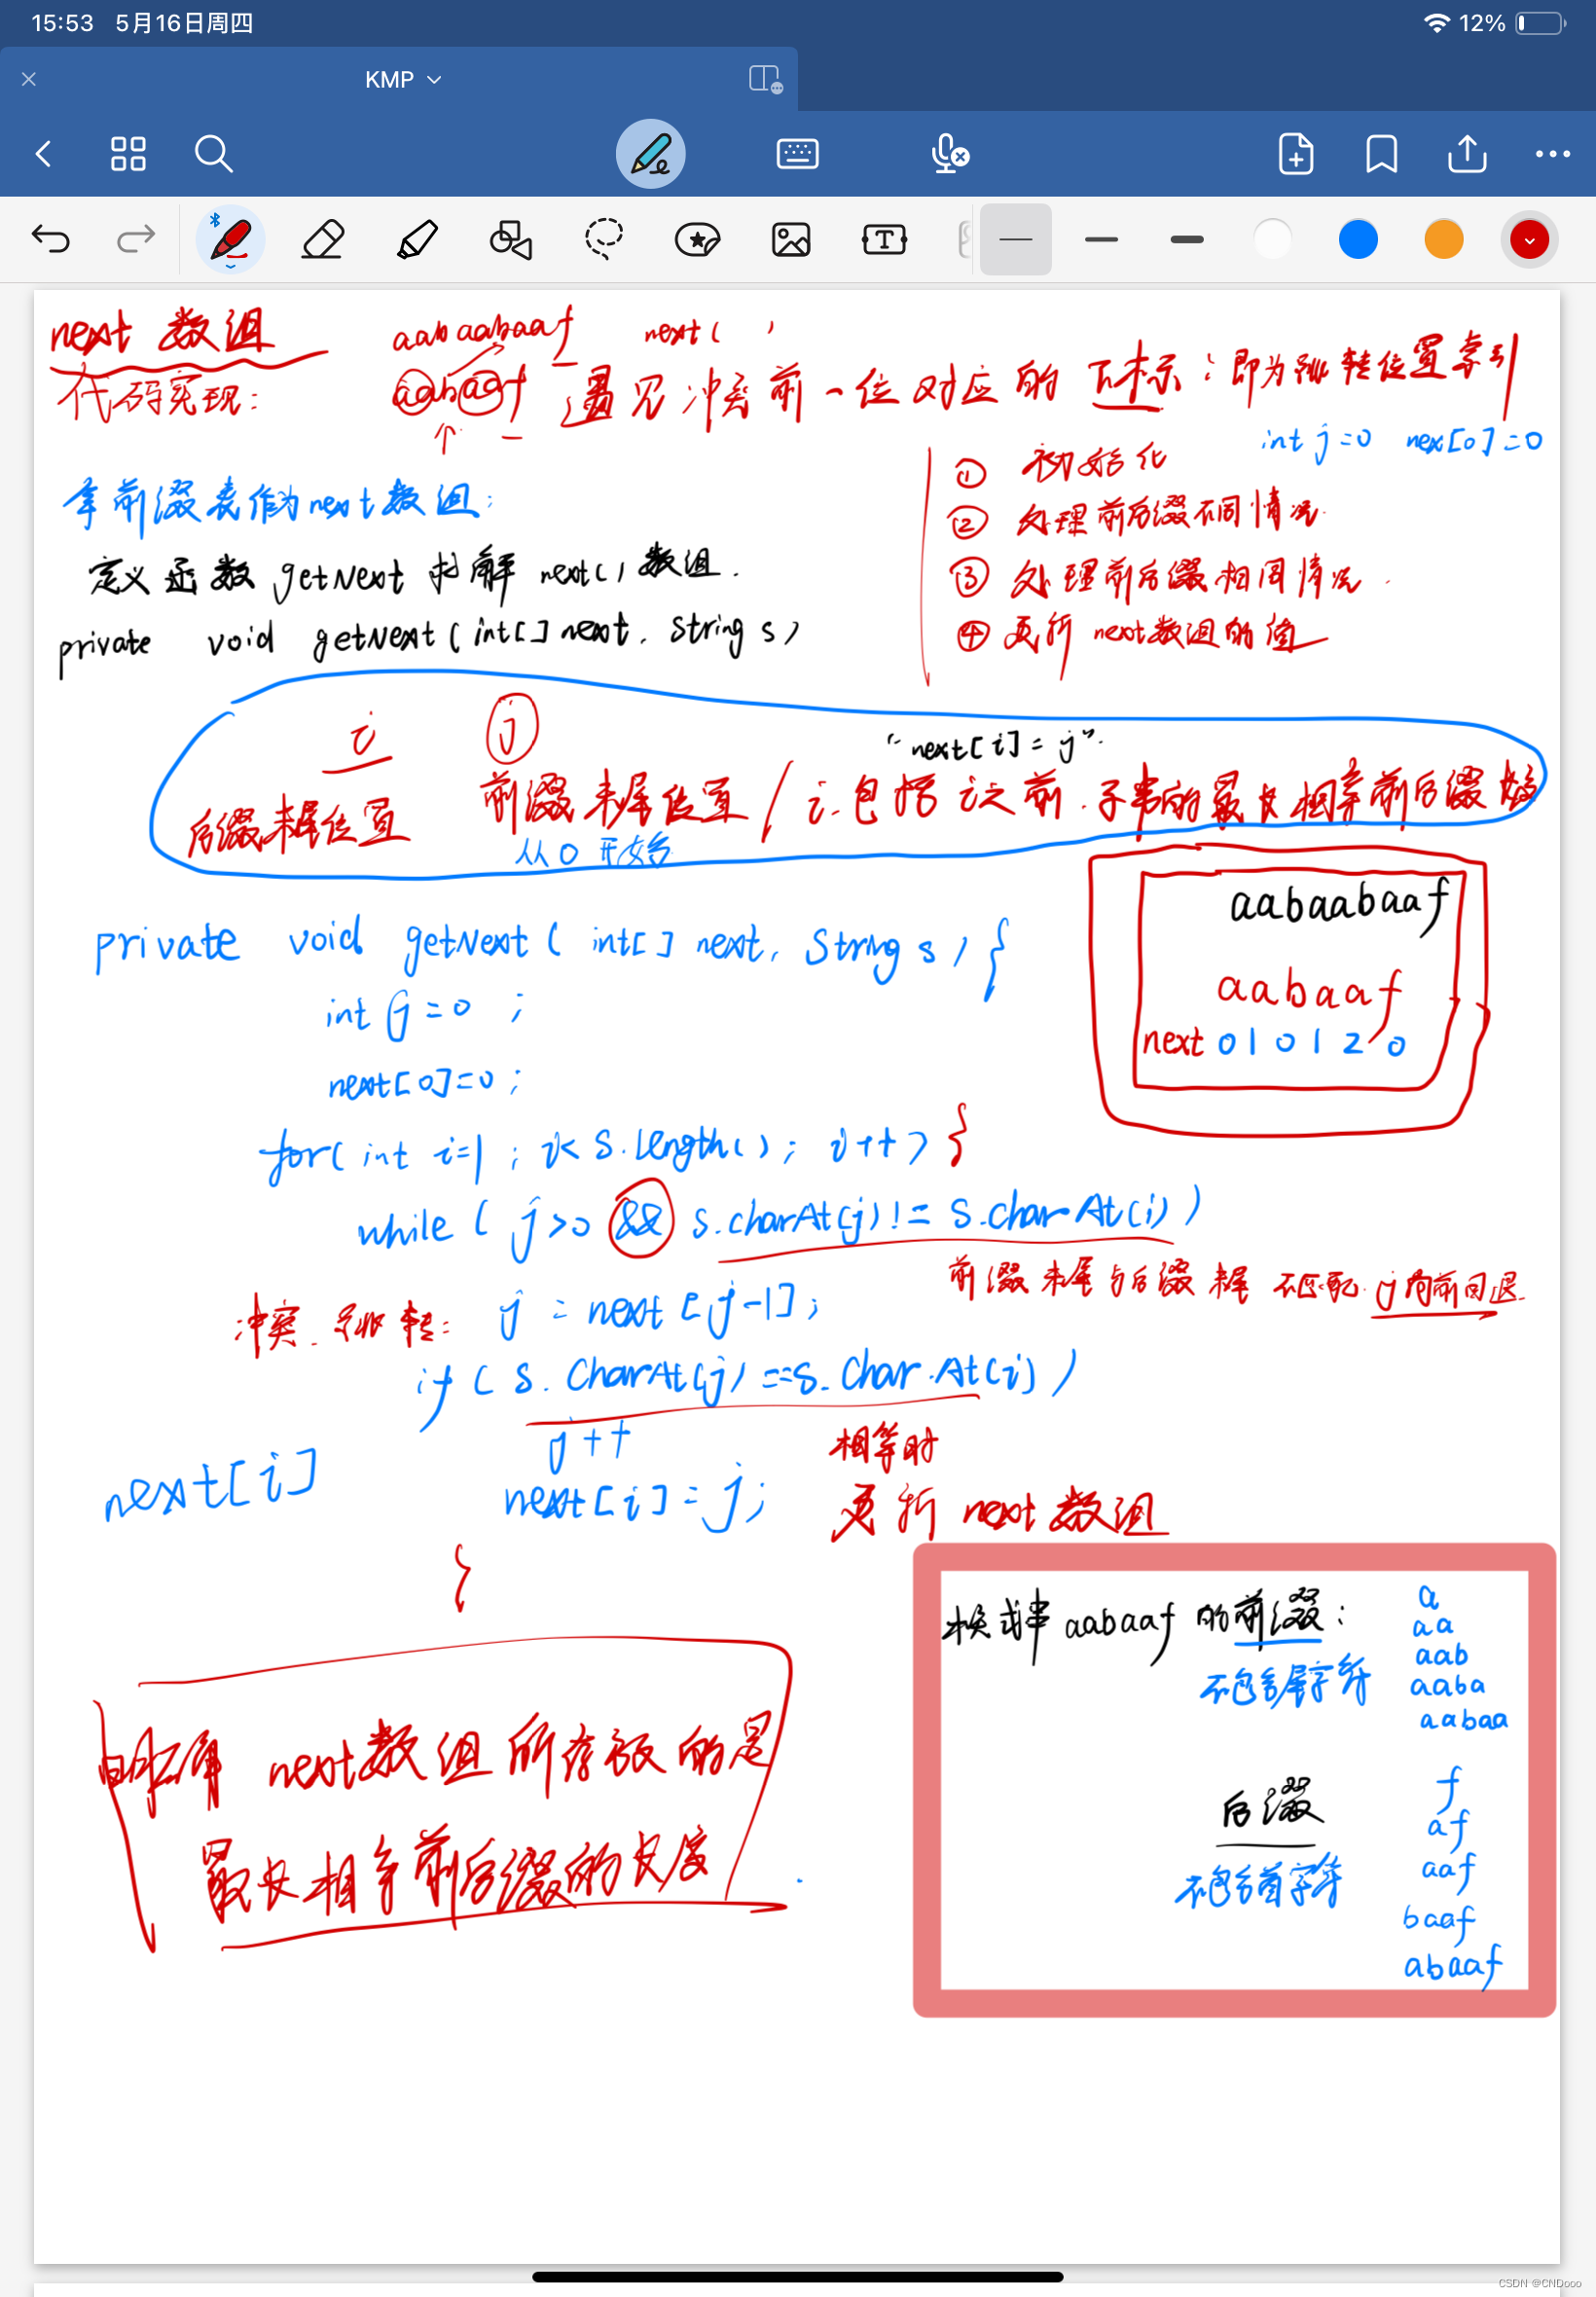 15:53 5月16日周四
12%
KMP
next 数组
aabaabaaf next( )
代码实现:
aabaaf 遇见冲突前一位对应的下标:即为跳转位置索引
int j=0 nex[0]=0
① 初始化
拿前缀表作为next数组:
② 处理前后缀不同情况
定义函数 getNext 求解 next() 数组.
③ 处理前后缀相同情况.
private void getNext(int[] next, String s)
④ 更新 next数组的值
i j
"next[i]=j".
后缀末尾位置 前缀末尾位置 / i包括i之前.子串的最大相等前后缀
从0开始
aabaabaaf
private void getNext(int[] next, String s){
aabaaf
int j=0 ;
next 0 1 0 1 2 0
next[0]=0;
for(int i=1; i< s.length(); i++){
while( j>0 && s.charAt(j)!= s.charAt(i))
前缀末尾与后缀末尾 不匹配.j向前回退.
冲突.跳转: j = next[j-1];
if(s.CharAt(j)==s.Char.At(i))
j++
相等时
next[i] next[i]=j;
更新 next数组
}
模式串 aabaaf 的前缀:
不包含尾字符
a
aa
aab
aaba
aabaa
明确 next数组所存放的是
最长相等前后缀的长度.
后缀
不包含首字符
f
af
aaf
baaf
abaaf
CSDN @CNDooo